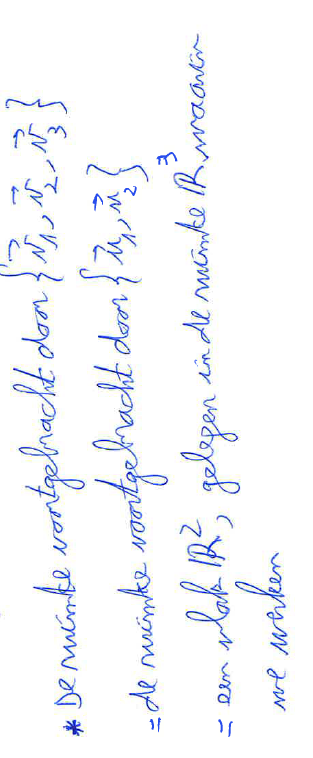 * De ruimte voortgebracht door {v⃗₁, v⃗₂, v⃗₃}
= de ruimte voortgebracht door {v⃗₁, v⃗₂}
= een vlak ℝ², gelegen in de ruimte ℝ³, waarin
we werken